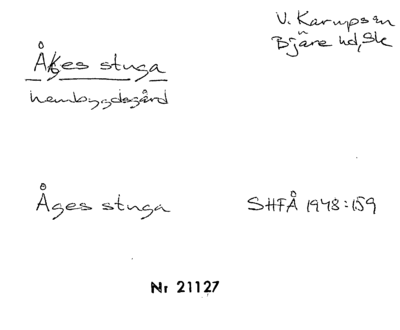 V. Karupssn
Bjäre hd, Sk
Åkes stuga
hembygdsgård
Åges stuga SHFÅ 1948:159
Nr 21127